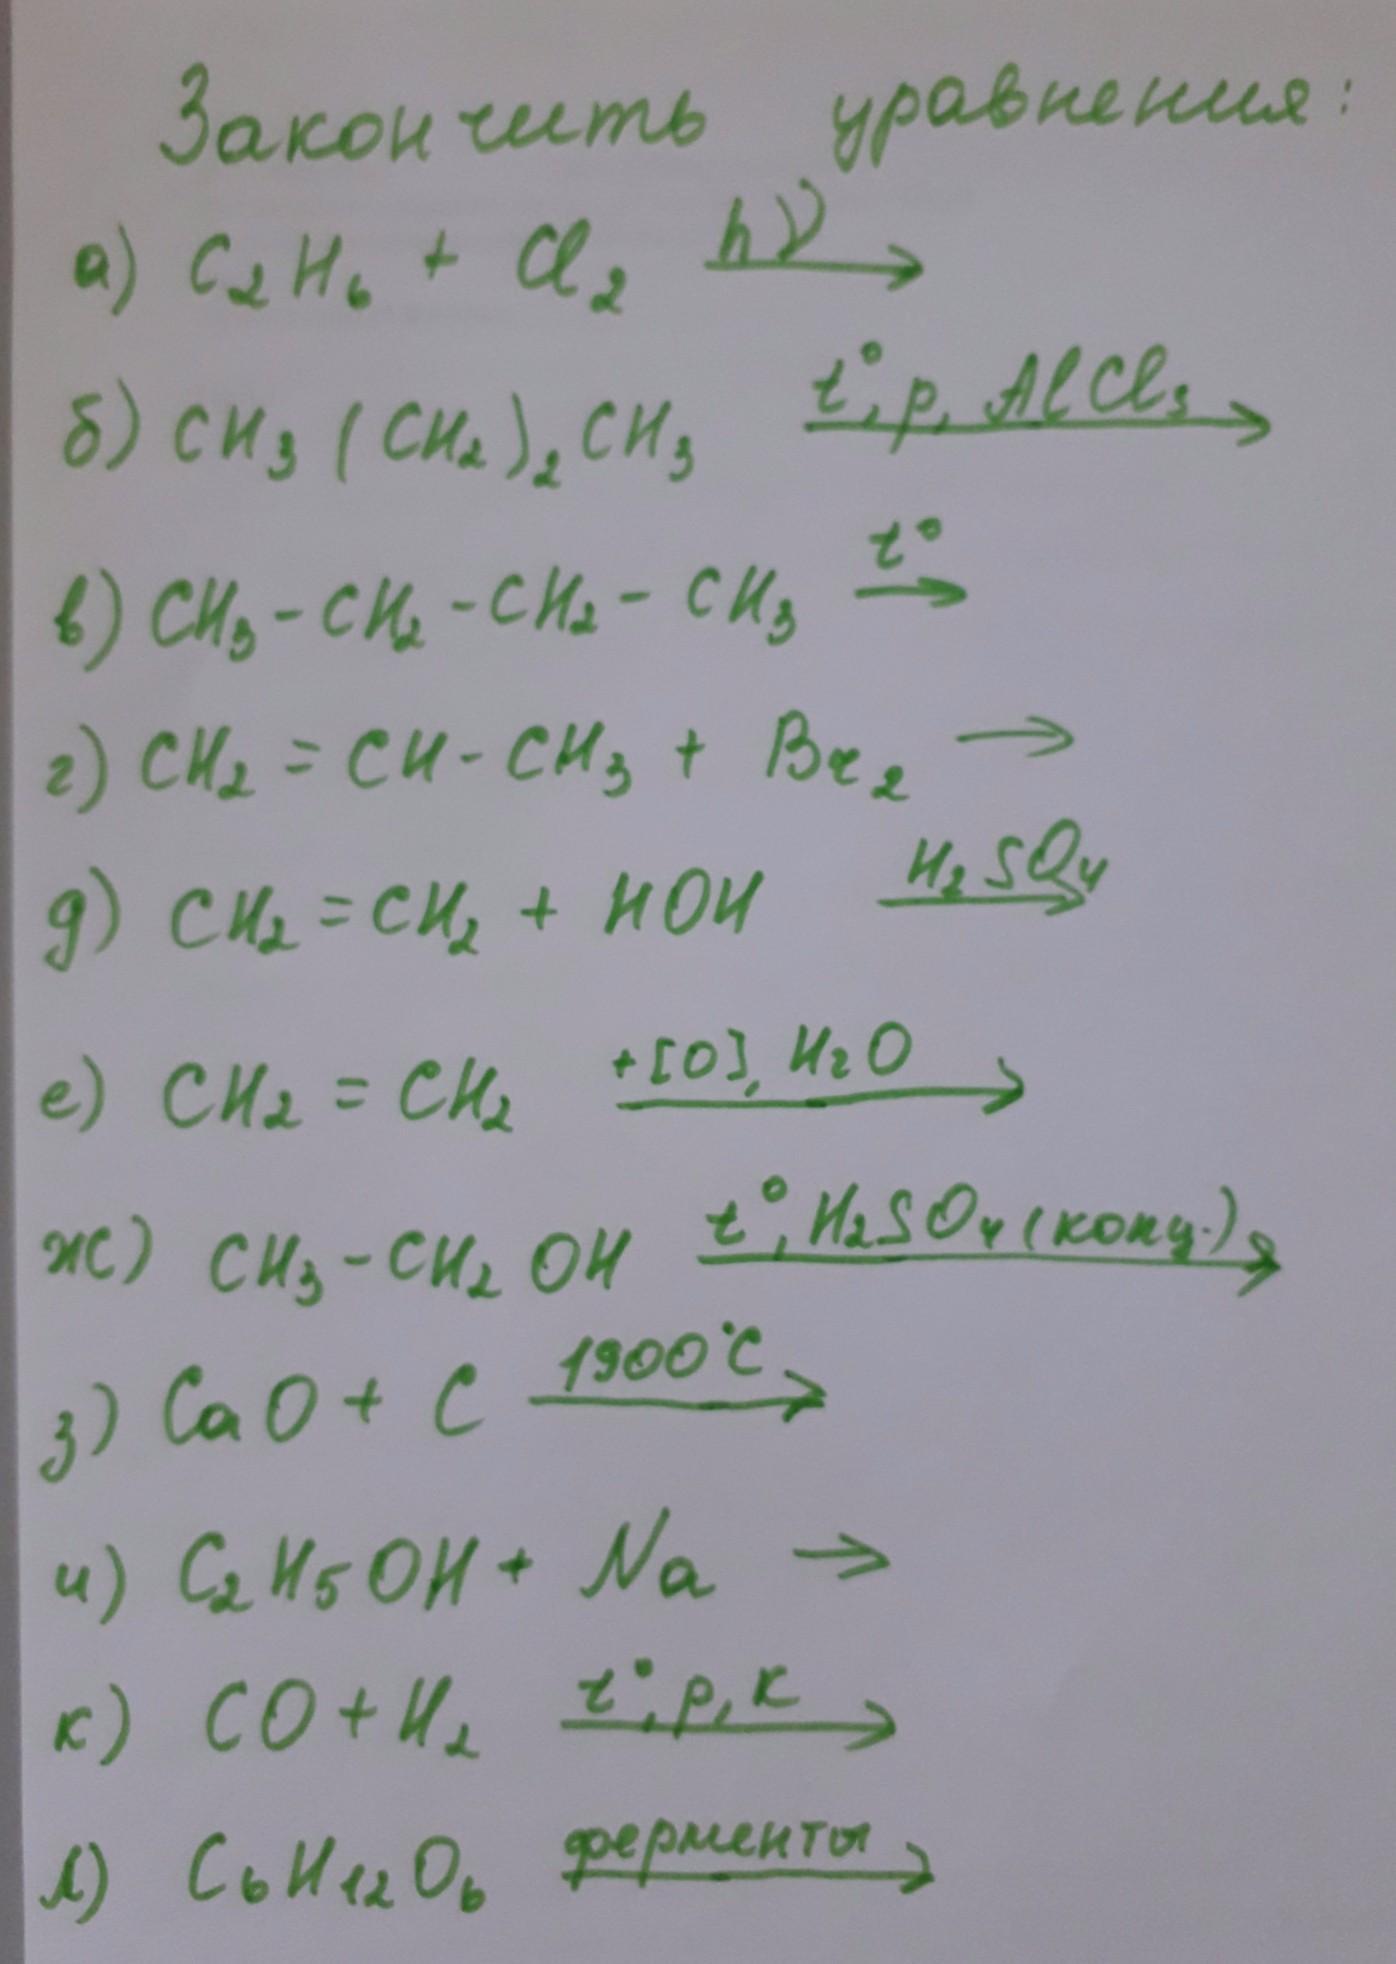 Закончить уравнения:
а) C₂H₆ + Cl₂ hν →
б) CH₃(CH₂)₂CH₃ t°, p, AlCl₃ →
в) CH₃-CH₂-CH₂-CH₃ t° →
г) CH₂=CH-CH₃ + Br₂ →
д) CH₂=CH₂ + HOH H₂SO₄ →
е) CH₂=CH₂ +[O], H₂O →
ж) CH₃-CH₂OH t°, H₂SO₄(конц.) →
з) CaO + C 1900°C →
и) C₂H₅OH + Na →
к) CO + H₂ t°, p, к →
л) C₆H₁₂O₆ ферменты →